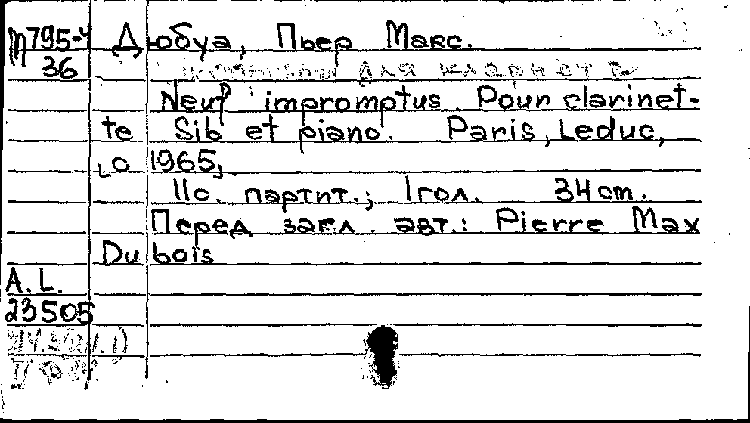 М795-4 Дюбуа, Пьер Макс.
36
для кларнета
Neuf impromptus. Pour clarinet-
te Sib et piano. Paris, Leduc,
1965,
11с. партит.; 1гол. 34cm.
Перед загл. авт.: Pierre Max
Dubois
A. L.
23505